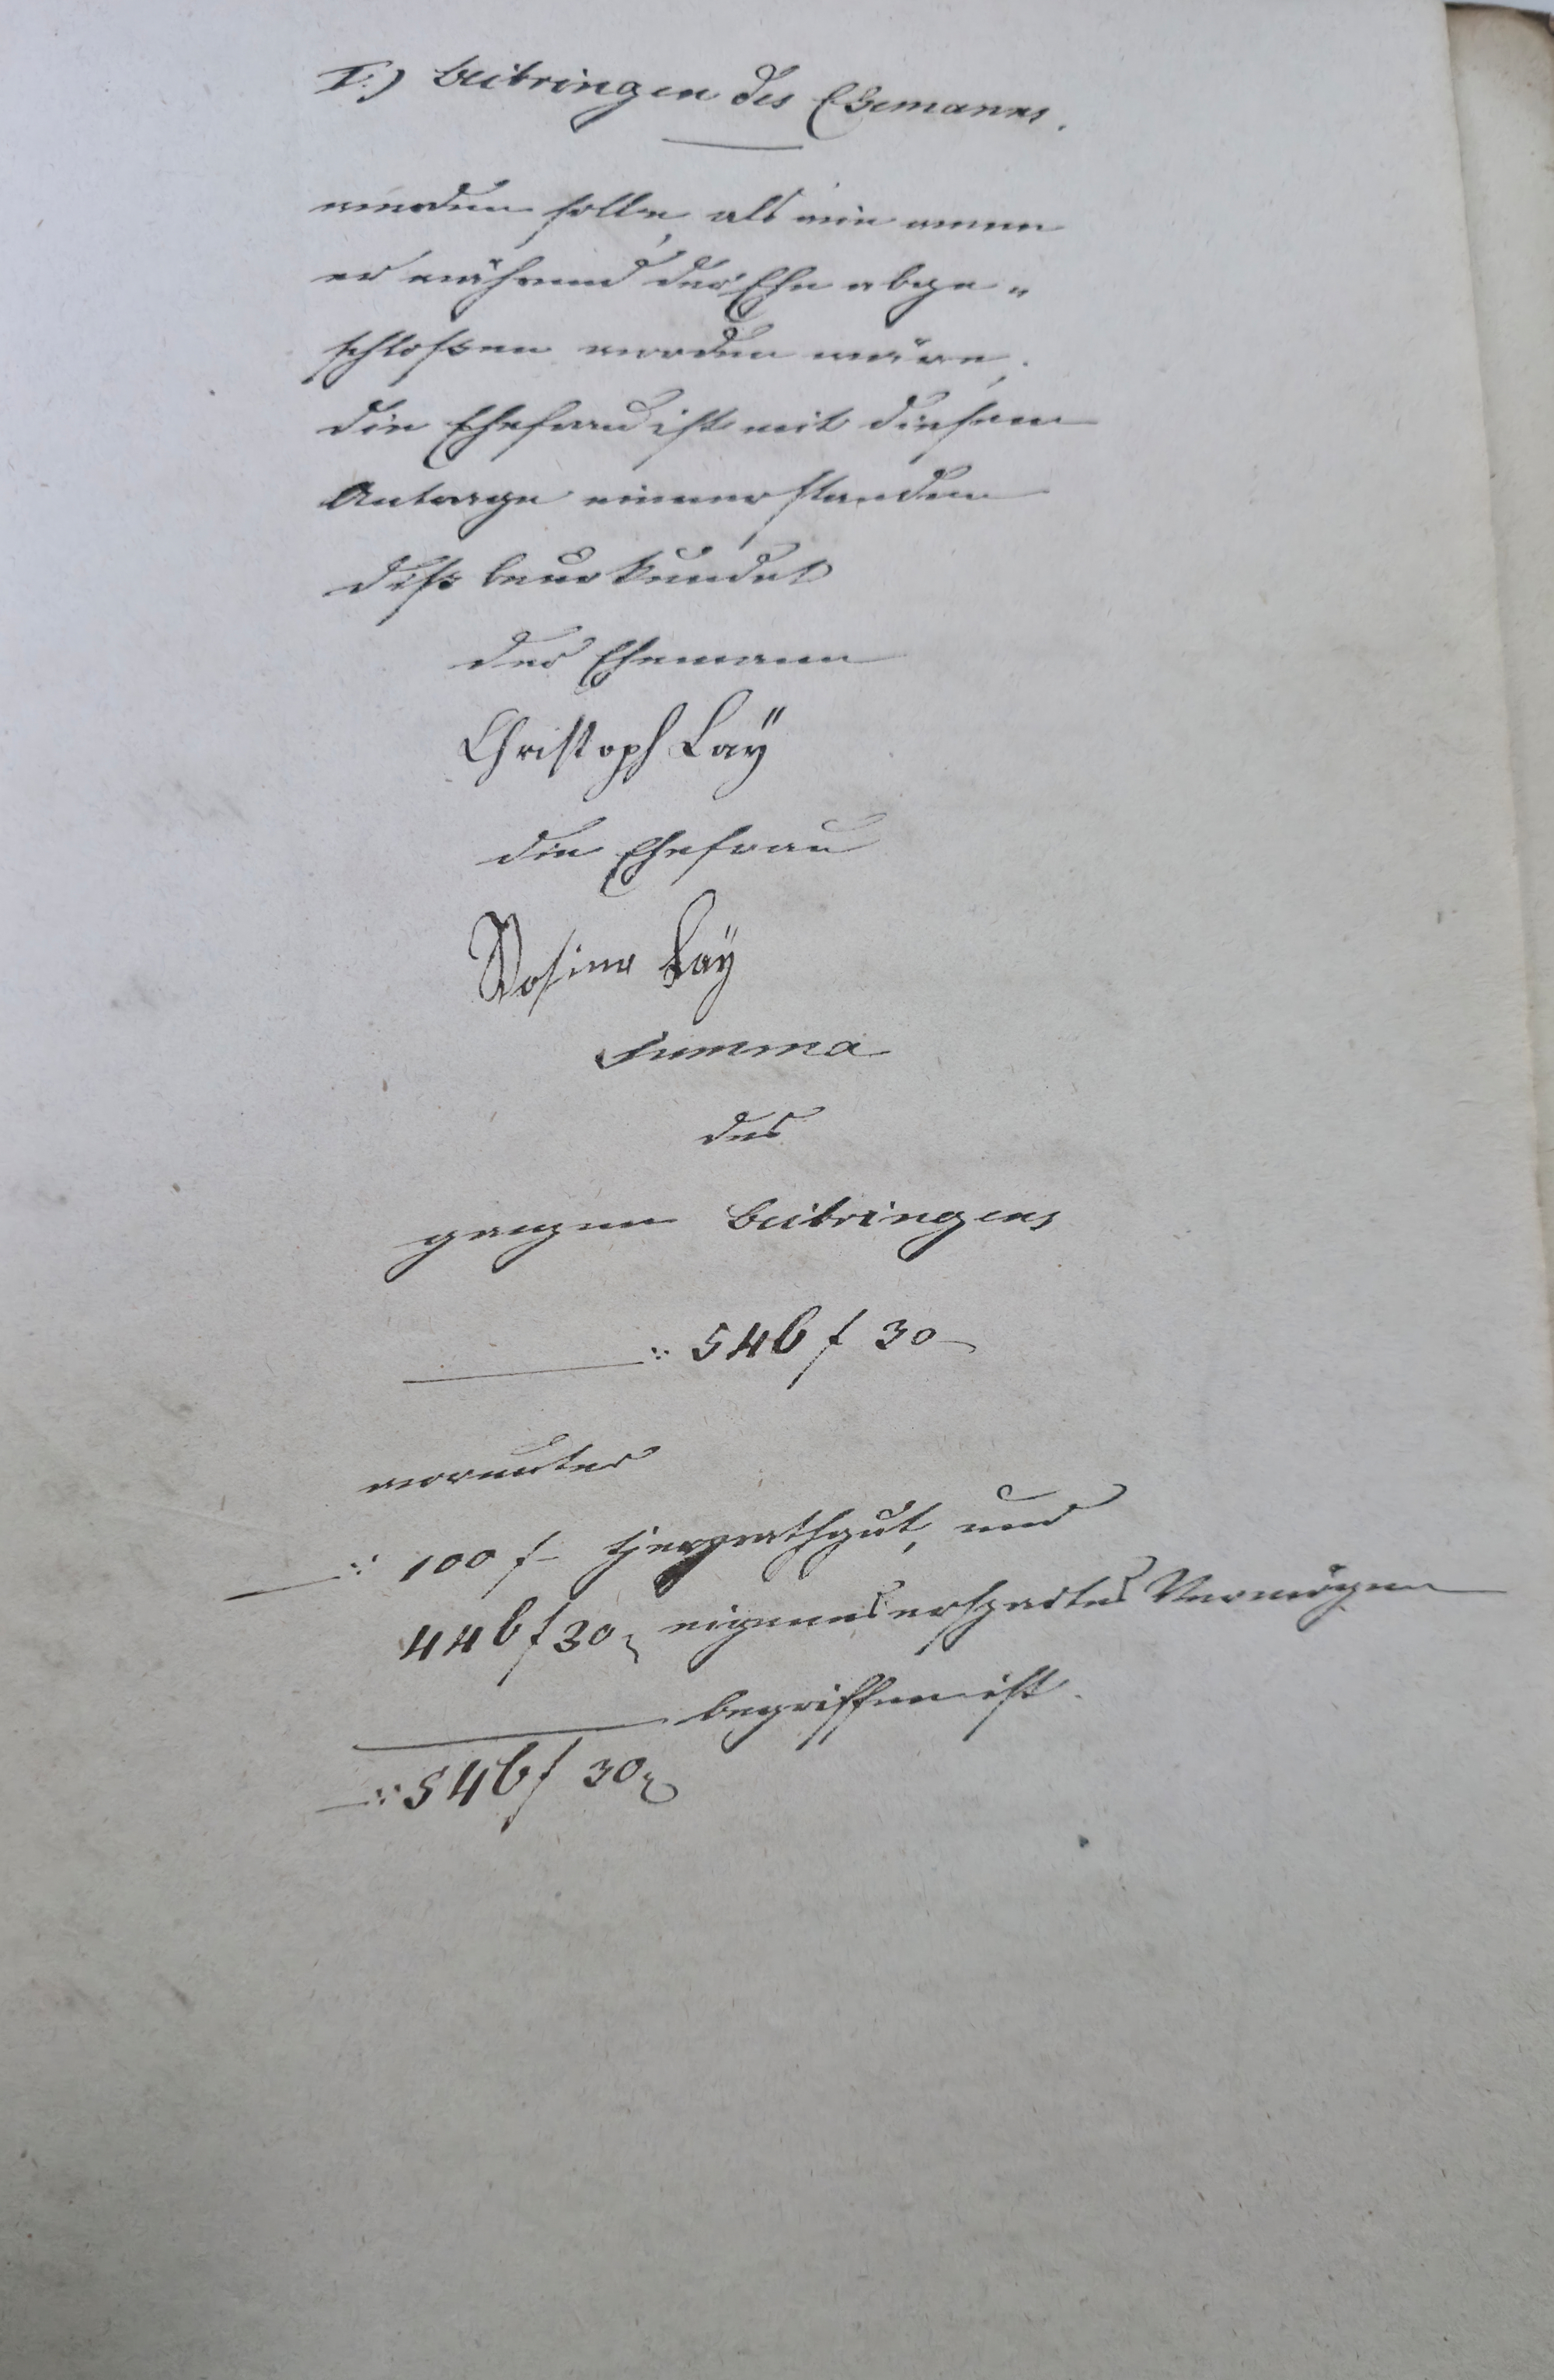 I.) Beibringen des Ehemanns.
werden solle, als wie wenn
er während der Ehe abge„
schloßen worden wäre.
die Ehefrau ist mit diesem
Antrage einverstanden
diß beurkundet
der Ehemann
Christoph Laÿ
die Ehefrau
Rosine Laÿ
Summa
des
ganzen Beibringens
546 f 30
worunter
100 f Heyrathgut, und
446 f 30 eigenes erspartes Vermögen
begriffen ist.
546 f 30